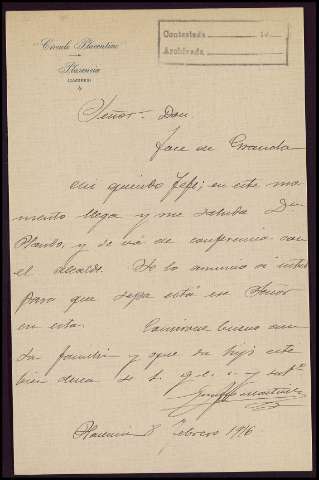 Círculo Placentino
Plasencia
(CACERES)
Contestada 19
Archivada
Señor Don
José de Granda
Mi querido Jefe; en este mo
mento llega y me saluda Don
y se vá de conferencia con
el alcalde. Se lo anuncio á usted
para que sepa está ese Señor
en esta. buena con
su familia y que su hijo este
bien
Martinez
Plasencia 8 Febrero 1916